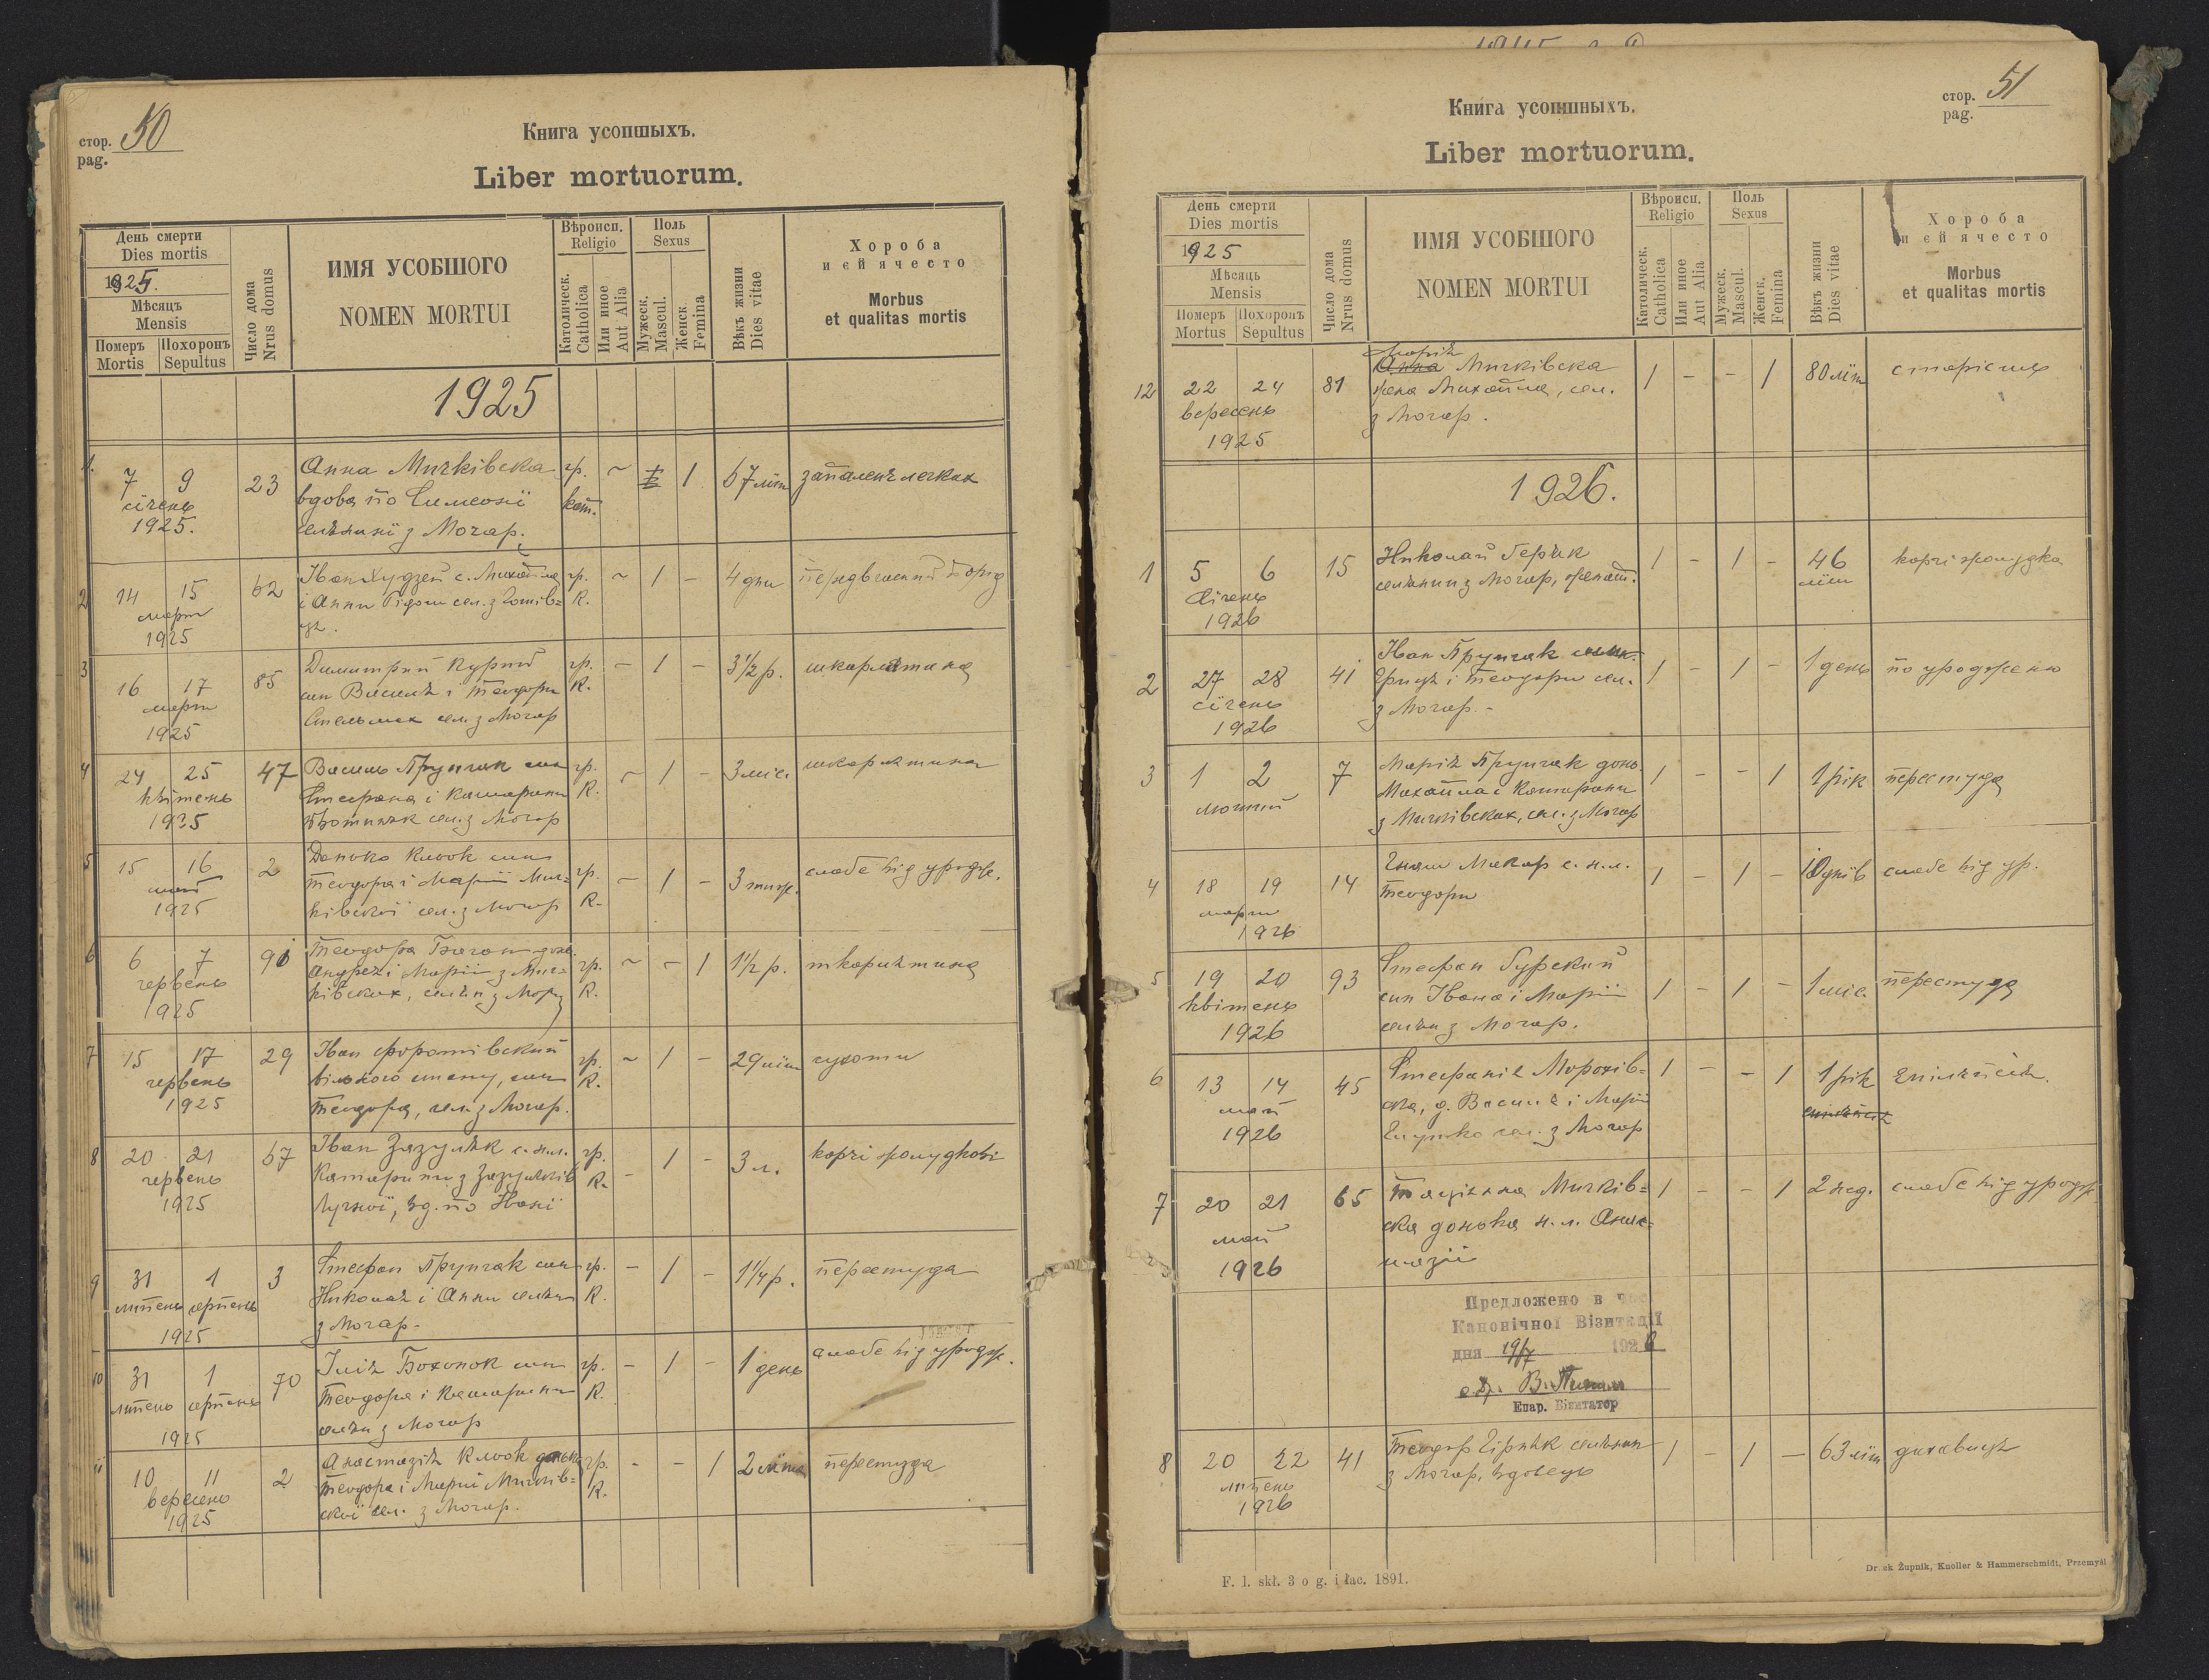 стор. 50
pag.
Книга усопшыхъ.
Liber mortuorum.
День смерти
Dies mortis
1925.
Мѣсяцъ
Mensis
Померъ Похоронъ
Mortis Sepultus
Число дома
Nrus domus
ИМЯ УСОБШОГО
NOMEN MORTUI
Вѣроисп.
Religio
Католическ.
Catholica
Или иное
Aut Alia
Поль
Sexus
Мужеск.
Mascul.
Женск.
Femina
Вѣкъ жизни
Dies vitae
Хороба
и єй ячесто
Morbus
et qualitas mortis
1925
1. 7 9 23 Анна Мичківска гр. ~ 1 67 літ запаленя легких
січень вдова по Симеонї кат.
1925. селянинї з Мочар.
2 14 15 62 Іван Худзей с. Михайла гр. ~ 1 - 4 дни
март і Анни сел. з R.
1925
3 16 17 85 Димитрий Курий гр. - 1 - 3 1/2 р. шкарлятина
март син Василя і Теодори R.
1925 Стельмах сел. з Мочар
4 24 25 47 Василь Прупчак син гр. ~ 1 - 3 міс. шкарлятина
квітень Стефана і Катарини R.
1925 сел. з Мочар
5 15 16 2 Данько Клюк син гр. ~ 1 - 3 тиж. слабе від уродж.
май Теодора і Марії Мич=
1925 ківскої сел. з Мочар R.
6 6 7 90 Теодора донь. гр. ~ - 1 1 1/2 р. шкарлятина
червень Андрея і Марії з Мич=
1925 ківских, селян з Мочар R.
7 15 17 29 Іван гр. ~ 1 - 29 літ сухоти
червень вільного стану, син R.
1925 Теодора, сел. з Мочар.
8 20 21 67 Іван Зазуляк с. н.л. гр. - 1 - 3 л. корчі жолудкові
червень Катарини з Зазуляків R.
1925 вд. по Іванї
9 31 1 3 Стефан Прупчак син гр. - 1 - 1 1/4 р. перестуда
липень серпень Николая і Анни селян R.
1925 з Мочар.
10 31 1 70 Ілія Бохонок син гр. - 1 - 1 день слабе від уродж.
липень серпень Теодора і Катарини R.
1925 селян з Мочар
11 10 11 2 Анастазія Клюк донька гр. - - 1 2 літа перестуда
вересень Теодора і Марії Мичків= R.
1925 скої сел. з Мочар.
стор. 51
pag.
Книга усопшныхъ.
Liber mortuorum.
День смерти
Dies mortis
1925
Мѣсяць
Mensis
Померъ Похоронъ
Mortus Sepultus
Число дома
Nrus domus
ИМЯ УСОБШОГО
NOMEN MORTUI
Вѣроисп.
Religio
Католическ.
Catholica
Или иное
Aut Alia
Поль
Sexus
Мужеск.
Mascul.
Женск.
Femina
Вѣкъ жизни
Dies vitae
Хороба
и єй ячесто
Morbus
et qualitas mortis
Марія
12 22 24 81 Анна Мичківска 1 - - 1 80 літ старість
вересень жена Михайла, сел.
1925 з Мочар.
1926.
1 5 6 15 Николай Геряк 1 - 1 - 46 корчі жолудка
січень селянин з Мочар, жонат. літ
1926
2 27 28 41 Іван Прупчак син 1 - 1 - 1 день по уродженю
січень Гриця і Теодори сел.
1926 з Мочар.-
3 1 2 7 Марія Прупчак донь. 1 - - 1 1 рік перестуда
лютий Михайла і Катарини
з Мичківских, сел. з Мочар
4 18 19 14 Гнат Макар с. н.л. 1 - 1 - 10 днів слабе від ур.
март Теодори
1926
5 19 20 93 Стефан Гурский 1 - 1 - 1 міс. перестуда
квітень син Івана і Марії
1926 селян з Мочар.
6 13 14 45 Стефанія Морохів= 1 - - 1 1 рік епілєпсія.
май ска, д. Василя і Марії
1926 сел. з Мочар
7 20 21 65 Тацянна Мичків= 1 - - 1 2 нед. слабе від уродж
май ска донька н.л. Анас=
1926 тазії
Предложено в час
Канонічної Візитації
дня 19/7 1928
о. Др. В.
Епар. Візитатор
8 20 22 41 Теодор селянин 1 - 1 - 63 літ дихавиця
липень з Мочар, вдовець
1926
F. l. skł. 3 o g. i łac. 1891.
Druk Żupnik, Knoller & Hammerschmidt, Przemyśl